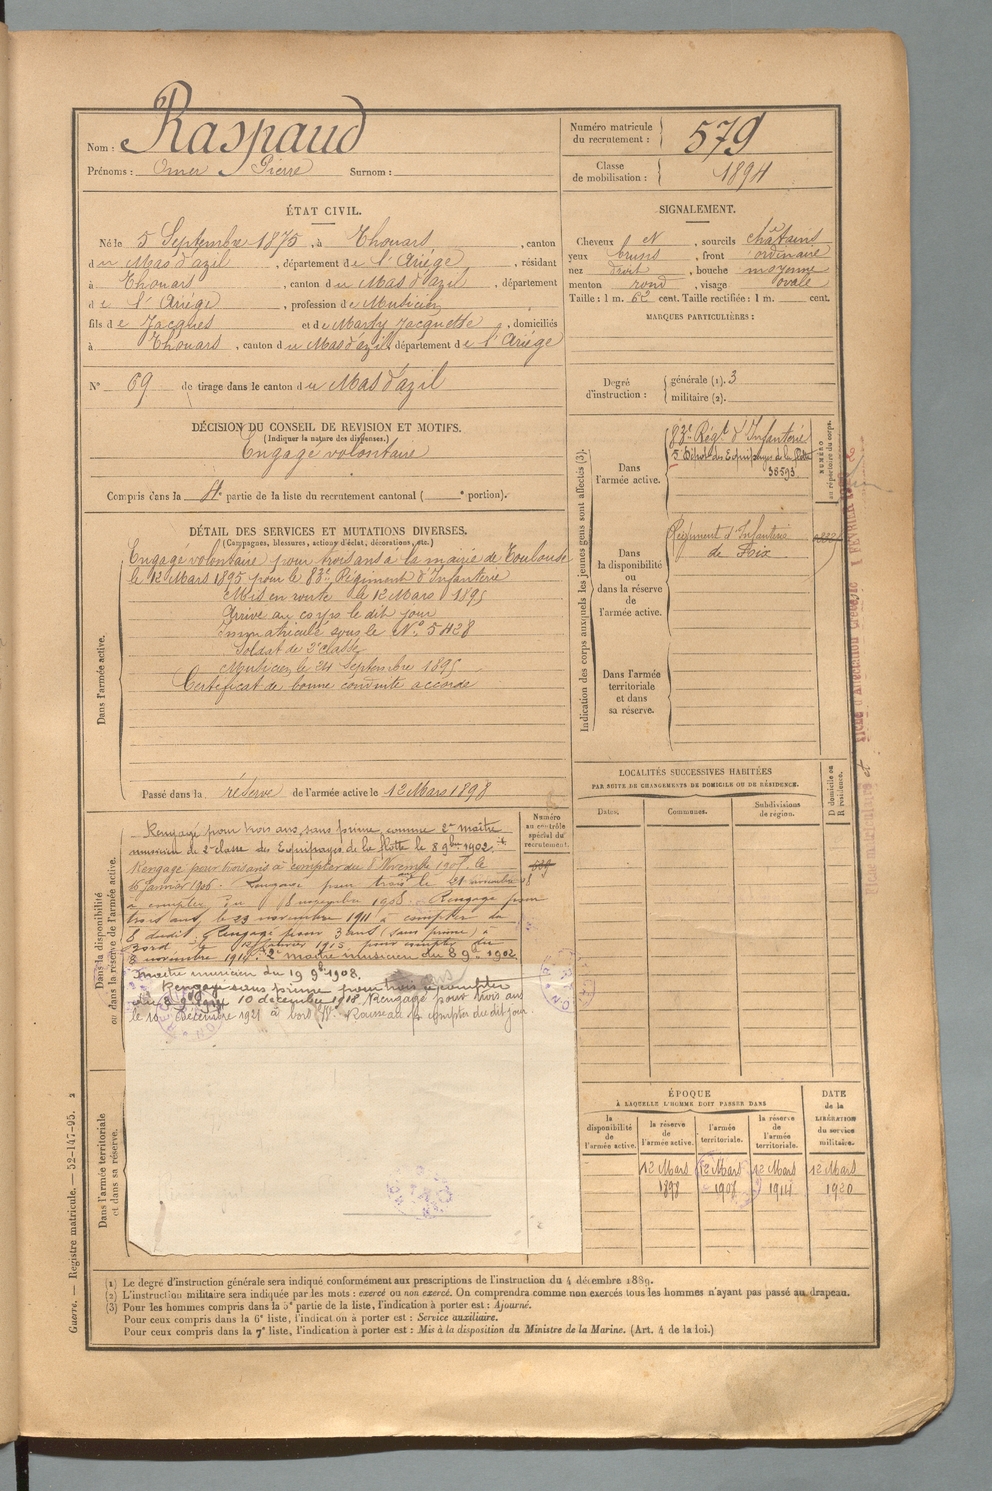 Nom : Raspaud
Prénoms : Omer Pierre Surnom :
Numéro matricule du recrutement : 579
Classe de mobilisation : 1894
ÉTAT CIVIL.
Né le 5 Septembre 1875, à Thouars, canton
du Mas d'azil, département de l'Ariège, résidant
à Thouars, canton du Mas d'azil, département
de l'Ariège, profession de Musicien
fils de Jacques et de Marty Jacquette, domiciliés
à Thouars, canton du Mas d'azil, département de l'Ariège
N° 69 de tirage dans le canton du Mas d'azil
SIGNALEMENT.
Cheveux et, sourcils châtains
yeux bruns, front ordinaire
nez droit, bouche moyenne
menton rond, visage ovale
Taille : 1 m. 62 cent. Taille rectifiée : 1 m. cent.
MARQUES PARTICULIÈRES :
Degré d'instruction : générale (1). 3
militaire (2).
DÉCISION DU CONSEIL DE REVISION ET MOTIFS.
(Indiquer la nature des dispenses.)
Engagé volontaire
Compris dans la 4e partie de la liste du recrutement cantonal ( e portion).
DÉTAIL DES SERVICES ET MUTATIONS DIVERSES.
(Campagnes, blessures, actions d'éclat, décorations, etc.)
Dans l'armée active.
Engagé volontaire pour trois ans à la mairie de Toulouse
le 12 Mars 1895 pour le 83e Régiment d'Infanterie
Mis en route le 12 Mars 1895
Arrivé au corps le dit jour
Immatriculé sous le N° 5428
Soldat de 2e classe
Musicien le 24 Septembre 1895
Certificat de bonne conduite accordé
Passé dans la réserve de l'armée active le 12 Mars 1898
Indication des corps auxquels les jeunes gens sont affectés (3).
Dans l'armée active.
83e Régt d'Infanterie
5e Dépôt des Equipages de la flotte
38593
NUMÉRO au répertoire du corps.
Dans la disponibilité ou dans la réserve de l'armée active.
Régiment d'Infanterie
de Foix
Dans l'armée territoriale et dans sa réserve.
LOCALITÉS SUCCESSIVES HABITÉES
PAR SUITE DE CHANGEMENTS DE DOMICILE OU DE RÉSIDENCE.
Dates. Communes. Subdivisions de région. D domicile ou R résidence.
Dans la disponibilité ou dans la réserve de l'armée active.
Numéro au contrôle spécial du recrutement.
Rengagé pour trois ans, sans prime, comme 2e maître
musicien de 2e classe des Equipages de la flotte le 8 9bre 1902.
Rengagé pour trois ans à compter du 8 Novembre 1905, le
16 janvier 1906. Rengagé pour trois ans le 21 novembre
à compter du 8 novembre 1908. Rengagé pour
trois ans, le 23 novembre 1911 à compter du
8 dudit. Rengagé pour 3 ans (sans prime) à
Bord le 12 février 1915 pour compter du
8 novembre 1914. 2e maître musicien du 8 9bre 1902
maître musicien du 19 9bre 1908.
Rengagé sans prime pour trois à compter
10 décembre 1918. Rengagé pour trois ans
le 10 Décembre 1921 à bord Rousseau à compter du dit jour.
Dans l'armée territoriale et dans sa réserve.
ÉPOQUE
À LAQUELLE L'HOMME DOIT PASSER DANS
la disponibilité de l'armée active. la réserve de l'armée active. l'armée territoriale. la réserve de l'armée territoriale.
DATE de la LIBÉRATION du service militaire.
12 Mars 12 Mars 12 Mars 12 Mars
1898 1908 1914 1920
(1) Le degré d'instruction générale sera indiqué conformément aux prescriptions de l'instruction du 4 décembre 1889.
(2) L'instruction militaire sera indiquée par les mots : exercé ou non exercé. On comprendra comme non exercés tous les hommes n'ayant pas passé au drapeau.
(3) Pour les hommes compris dans la 5e partie de la liste, l'indication à porter est : Ajourné.
Pour ceux compris dans la 6e liste, l'indication à porter est : Service auxiliaire.
Pour ceux compris dans la 7e liste, l'indication à porter est : Mis à la disposition du Ministre de la Marine. (Art. 4 de la loi.)
Guerre. — Registre matricule. — 52-147-95. 2